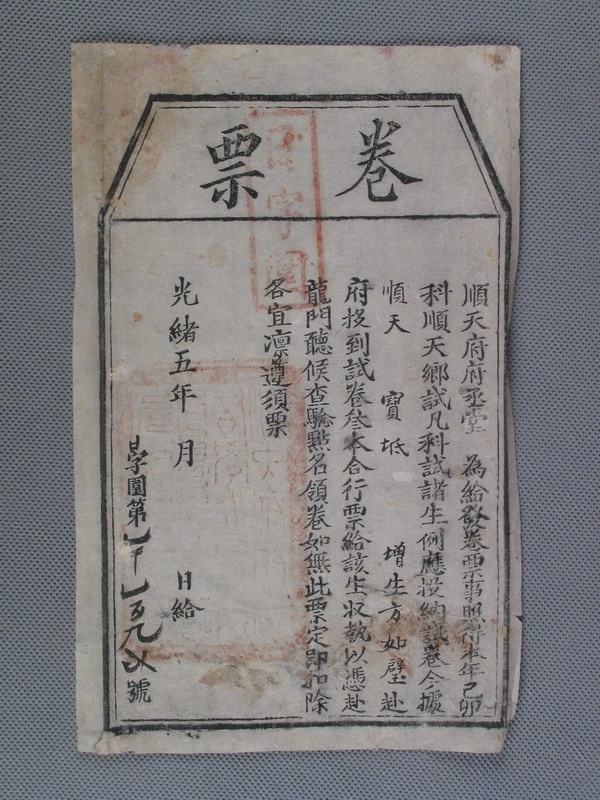 卷票
順天府府丞堂 為給發卷票事照得本年己卯
科順天鄉試凡科試諸生例應投納試卷今據
順天 寶坻 增生方如璧赴
府投到試卷叁本合行票給該生收執以憑赴
龍門聽候查驗點名領卷如無此票定即扣除
各宜凛遵須票
光緒五年 月 日給
字圍第 號
字圍